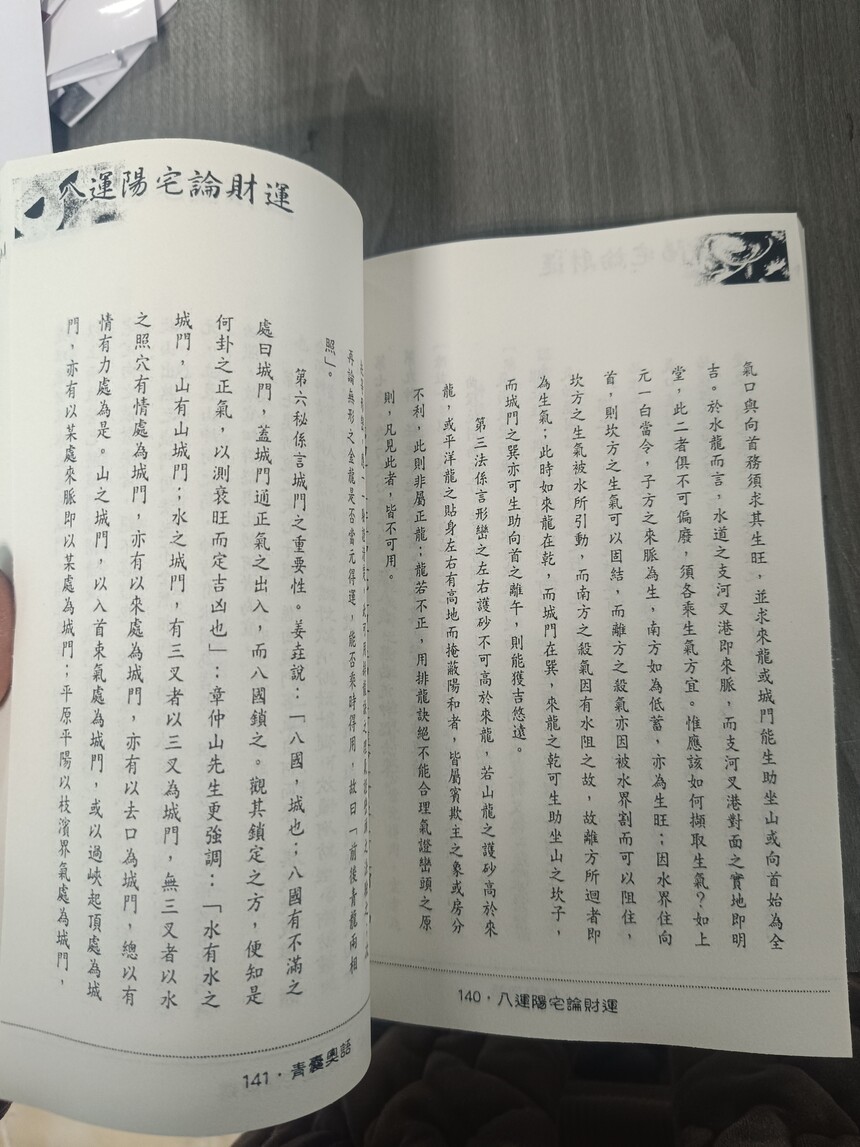 氣口與向首務須求其生旺，並求來龍或城門能生助坐山或向首始為全
吉。於水龍而言，水道之支河叉港即來脈，而支河叉港對面之實地即明
堂，此二者俱不可偏廢，須各乘生氣方宜。惟應該如何擷取生氣？如上
元一白當令，子方之來脈為生，南方如為低蓄，亦為生旺；因水界住向
首，則坎方之生氣可以固結，而離方之殺氣亦因被水界割而可以阻住，
坎方之生氣被水所引動，而南方之殺氣因有水阻之故，故離方所迴者即
為生氣；此時如來龍在乾，而城門在巽，來龍之乾可生助坐山之坎子，
而城門之巽亦可生助向首之離午，則能獲吉悠遠。
第三法係言形巒之左右護砂不可高於來龍，若山龍之護砂高於來
龍，或平洋龍之貼身左右有高地而掩蔽陽和者，皆屬賓欺主之象或房分
不利，此則非屬正龍；龍若不正，用排龍訣絕不能合理氣證巒頭之原
則，凡見此者，皆不可用。
140·八運陽宅論財運
八運陽宅論財運
再論無形之金龍是否當元得運，能否乘時得用，故曰「前後青龍兩相
照」。
第六秘係言城門之重要性。姜垚說：「八國，城也；八國有不滿之
處曰城門，蓋城門通正氣之出入，而八國鎖之。觀其鎖定之方，便知是
何卦之正氣，以測衰旺而定吉凶也」：章仲山先生更強調：「水有水之
城門，山有山城門；水之城門，有三叉者以三叉為城門，無三叉者以水
之照穴有情處為城門，亦有以來處為城門，亦有以去口為城門，總以有
情有力處為是。山之城門，以入首束氣處為城門，或以過峽起頂處為城
門，亦有以某處來脈即以某處為城門；平原平陽以枝濱界氣處為城門，
141·青囊奧語